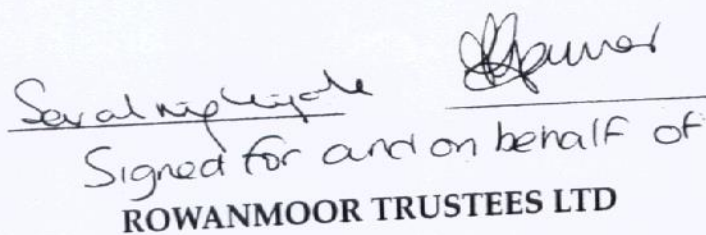 Signed for and on behalf of
ROWANMOOR TRUSTEES LTD